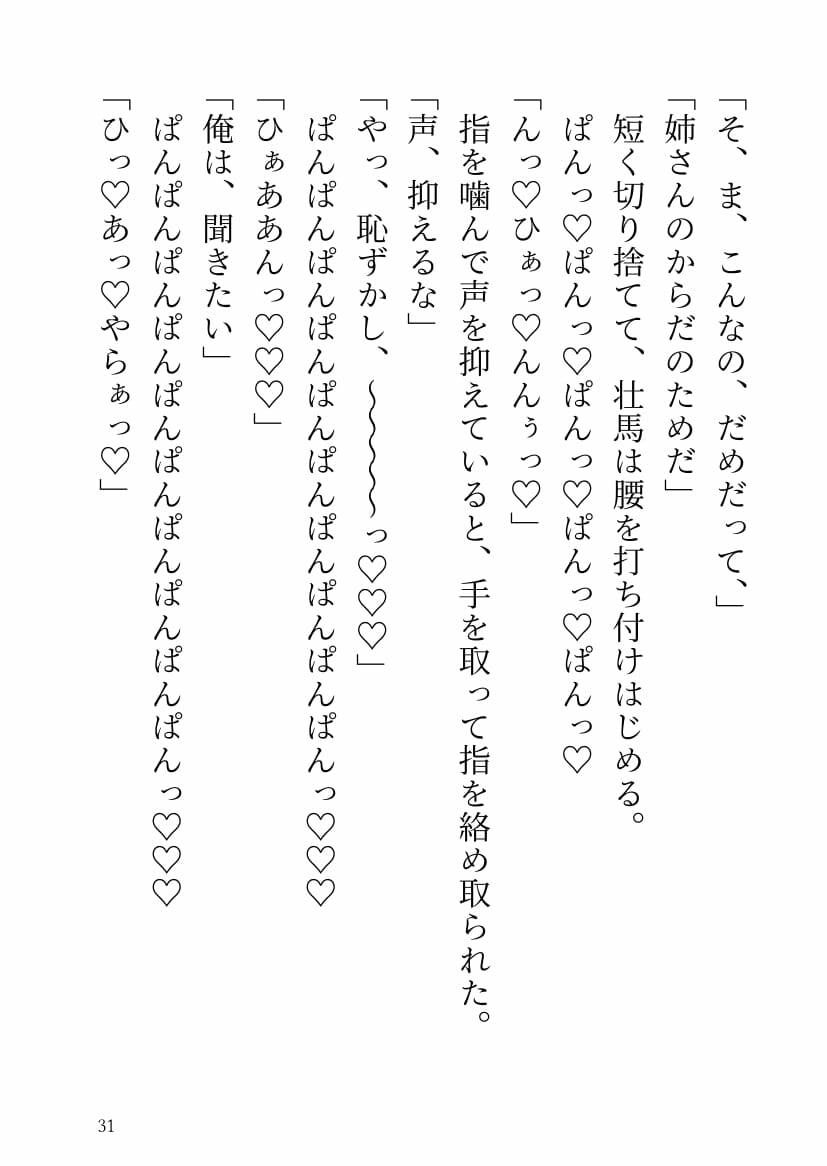 「そ、ま、こんなの、だめだって、」
「姉さんのからだのためだ」
短く切り捨てて、壮馬は腰を打ち付けはじめる。
ぱんっ♡ぱんっ♡ぱんっ♡ぱんっ♡ぱんっ♡
「んっ♡ひぁっ♡んんぅっ♡」
指を噛んで声を抑えていると、手を取って指を絡め取られた。
「声、抑えるな」
「やっ、恥ずかし、〜〜〜〜っ♡♡♡」
ぱんぱんぱんぱんぱんぱんぱんぱんぱんぱんっ♡♡♡
「ひぁああんっ♡♡♡」
「俺は、聞きたい」
ぱんぱんぱんぱんぱんぱんぱんぱんぱんぱんっ♡♡♡
「ひっ♡あっ♡やらぁっ♡」
31